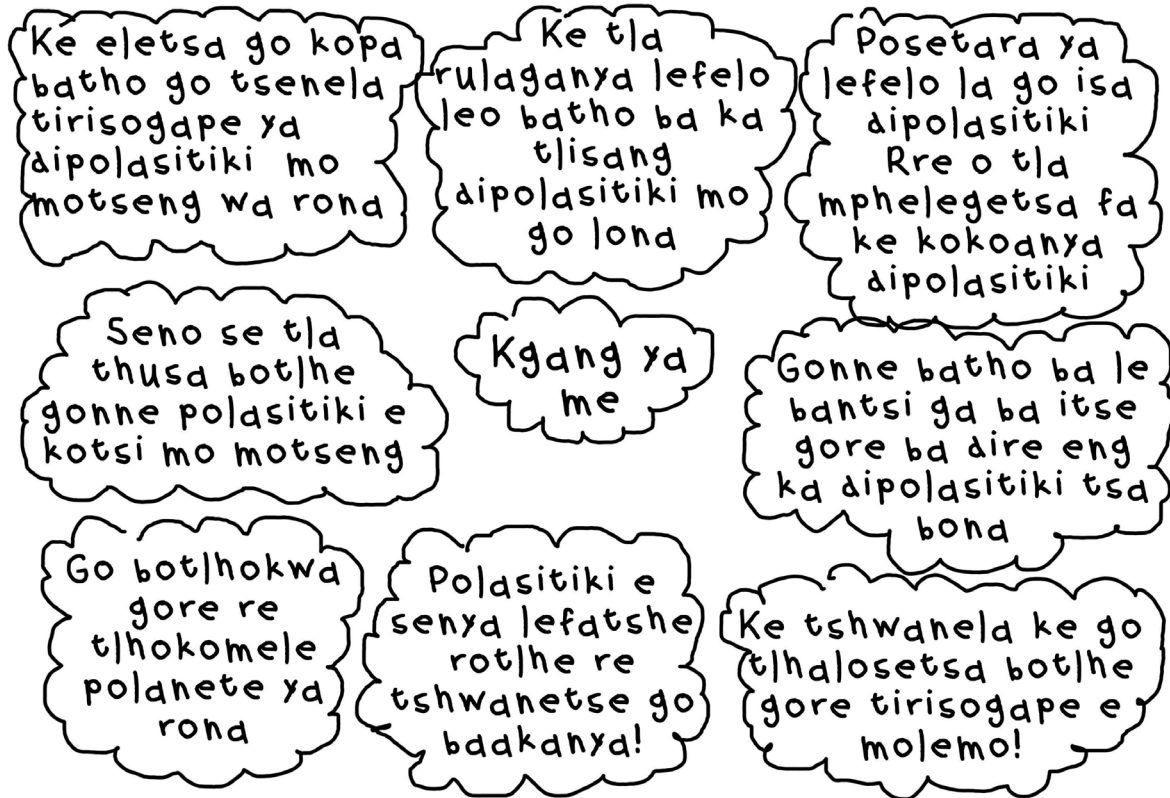 Ke eletsa go kopa
batho go tsenela
tirisogape ya
dipolasitiki mo
motseng wa rona
Ke tla
rulaganya lefelo
leo batho ba ka
tlisang
dipolasitiki mo
go lona
Posetara ya
lefelo la go isa
dipolasitiki
Rre o tla
mphelegetsa fa
ke kokoanya
dipolasitiki
Seno se tla
thusa botlhe
gonne polasitiki e
kotsi mo motseng
Kgang ya
me
Gonne batho ba le
bantsi ga ba itse
gore ba dire eng
ka dipolasitiki tsa
bona
Go botlhokwa
gore re
tlhokomele
polanete ya
rona
Polasitiki e
senya lefatshe
rotlhe re
tshwanetse go
baakanya!
Ke tshwanela ke go
tlhalosetsa botlhe
gore tirisogape e
molemo!